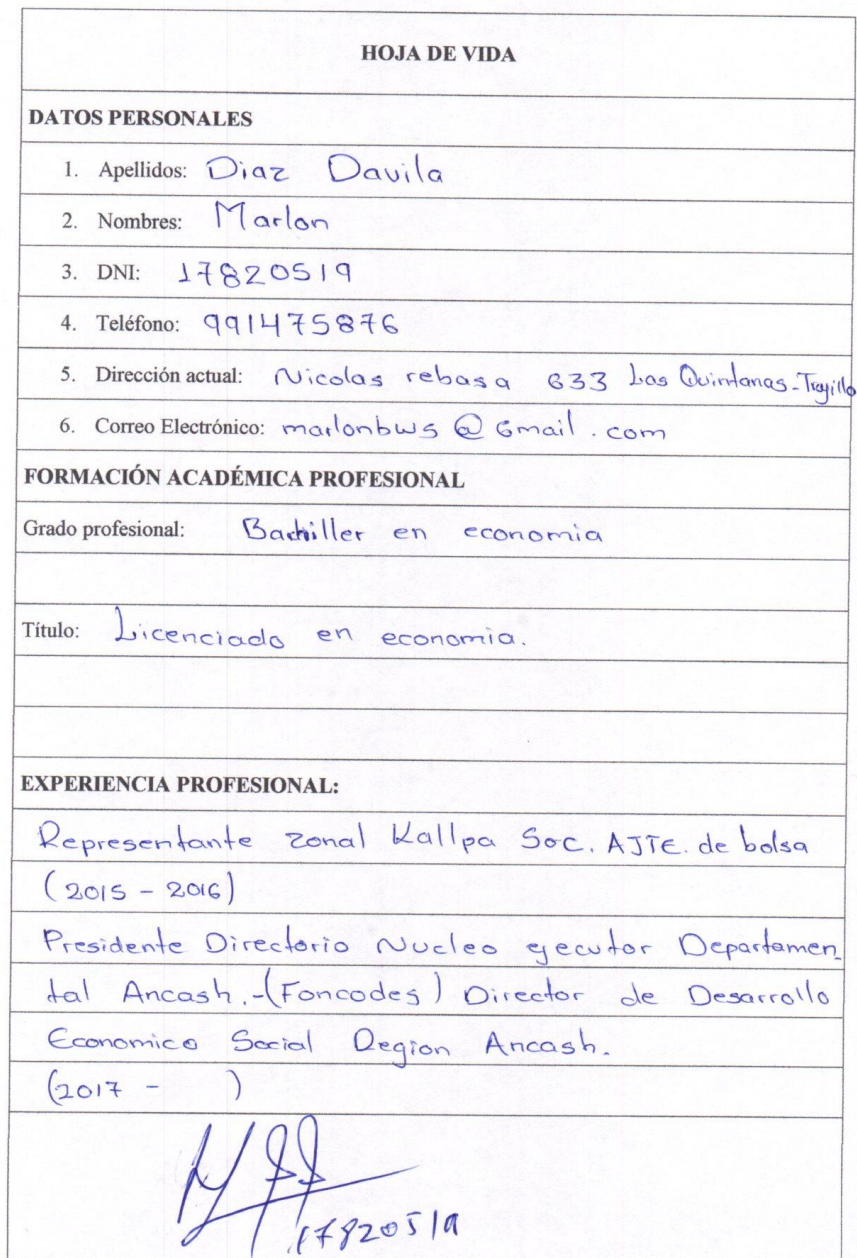 HOJA DE VIDA
DATOS PERSONALES
1. Apellidos: Diaz Davila
2. Nombres: Marlon
3. DNI: 17820519
4. Teléfono: 991475876
5. Dirección actual: Nicolas rebasa 633 Las Quintanas-Trujillo
6. Correo Electrónico: marlonbws@Gmail.com
FORMACIÓN ACADÉMICA PROFESIONAL
Grado profesional: Bachiller en economia
Título: Licenciado en economia.
EXPERIENCIA PROFESIONAL:
Representante zonal Kallpa Soc. AJTE. de bolsa
(2015 - 2016)
Presidente Directorio Nucleo ejecutor Departamen-
tal Ancash.-(Foncodes) Director de Desarrollo
Economico Social Region Ancash.
(2017 - )
17820519